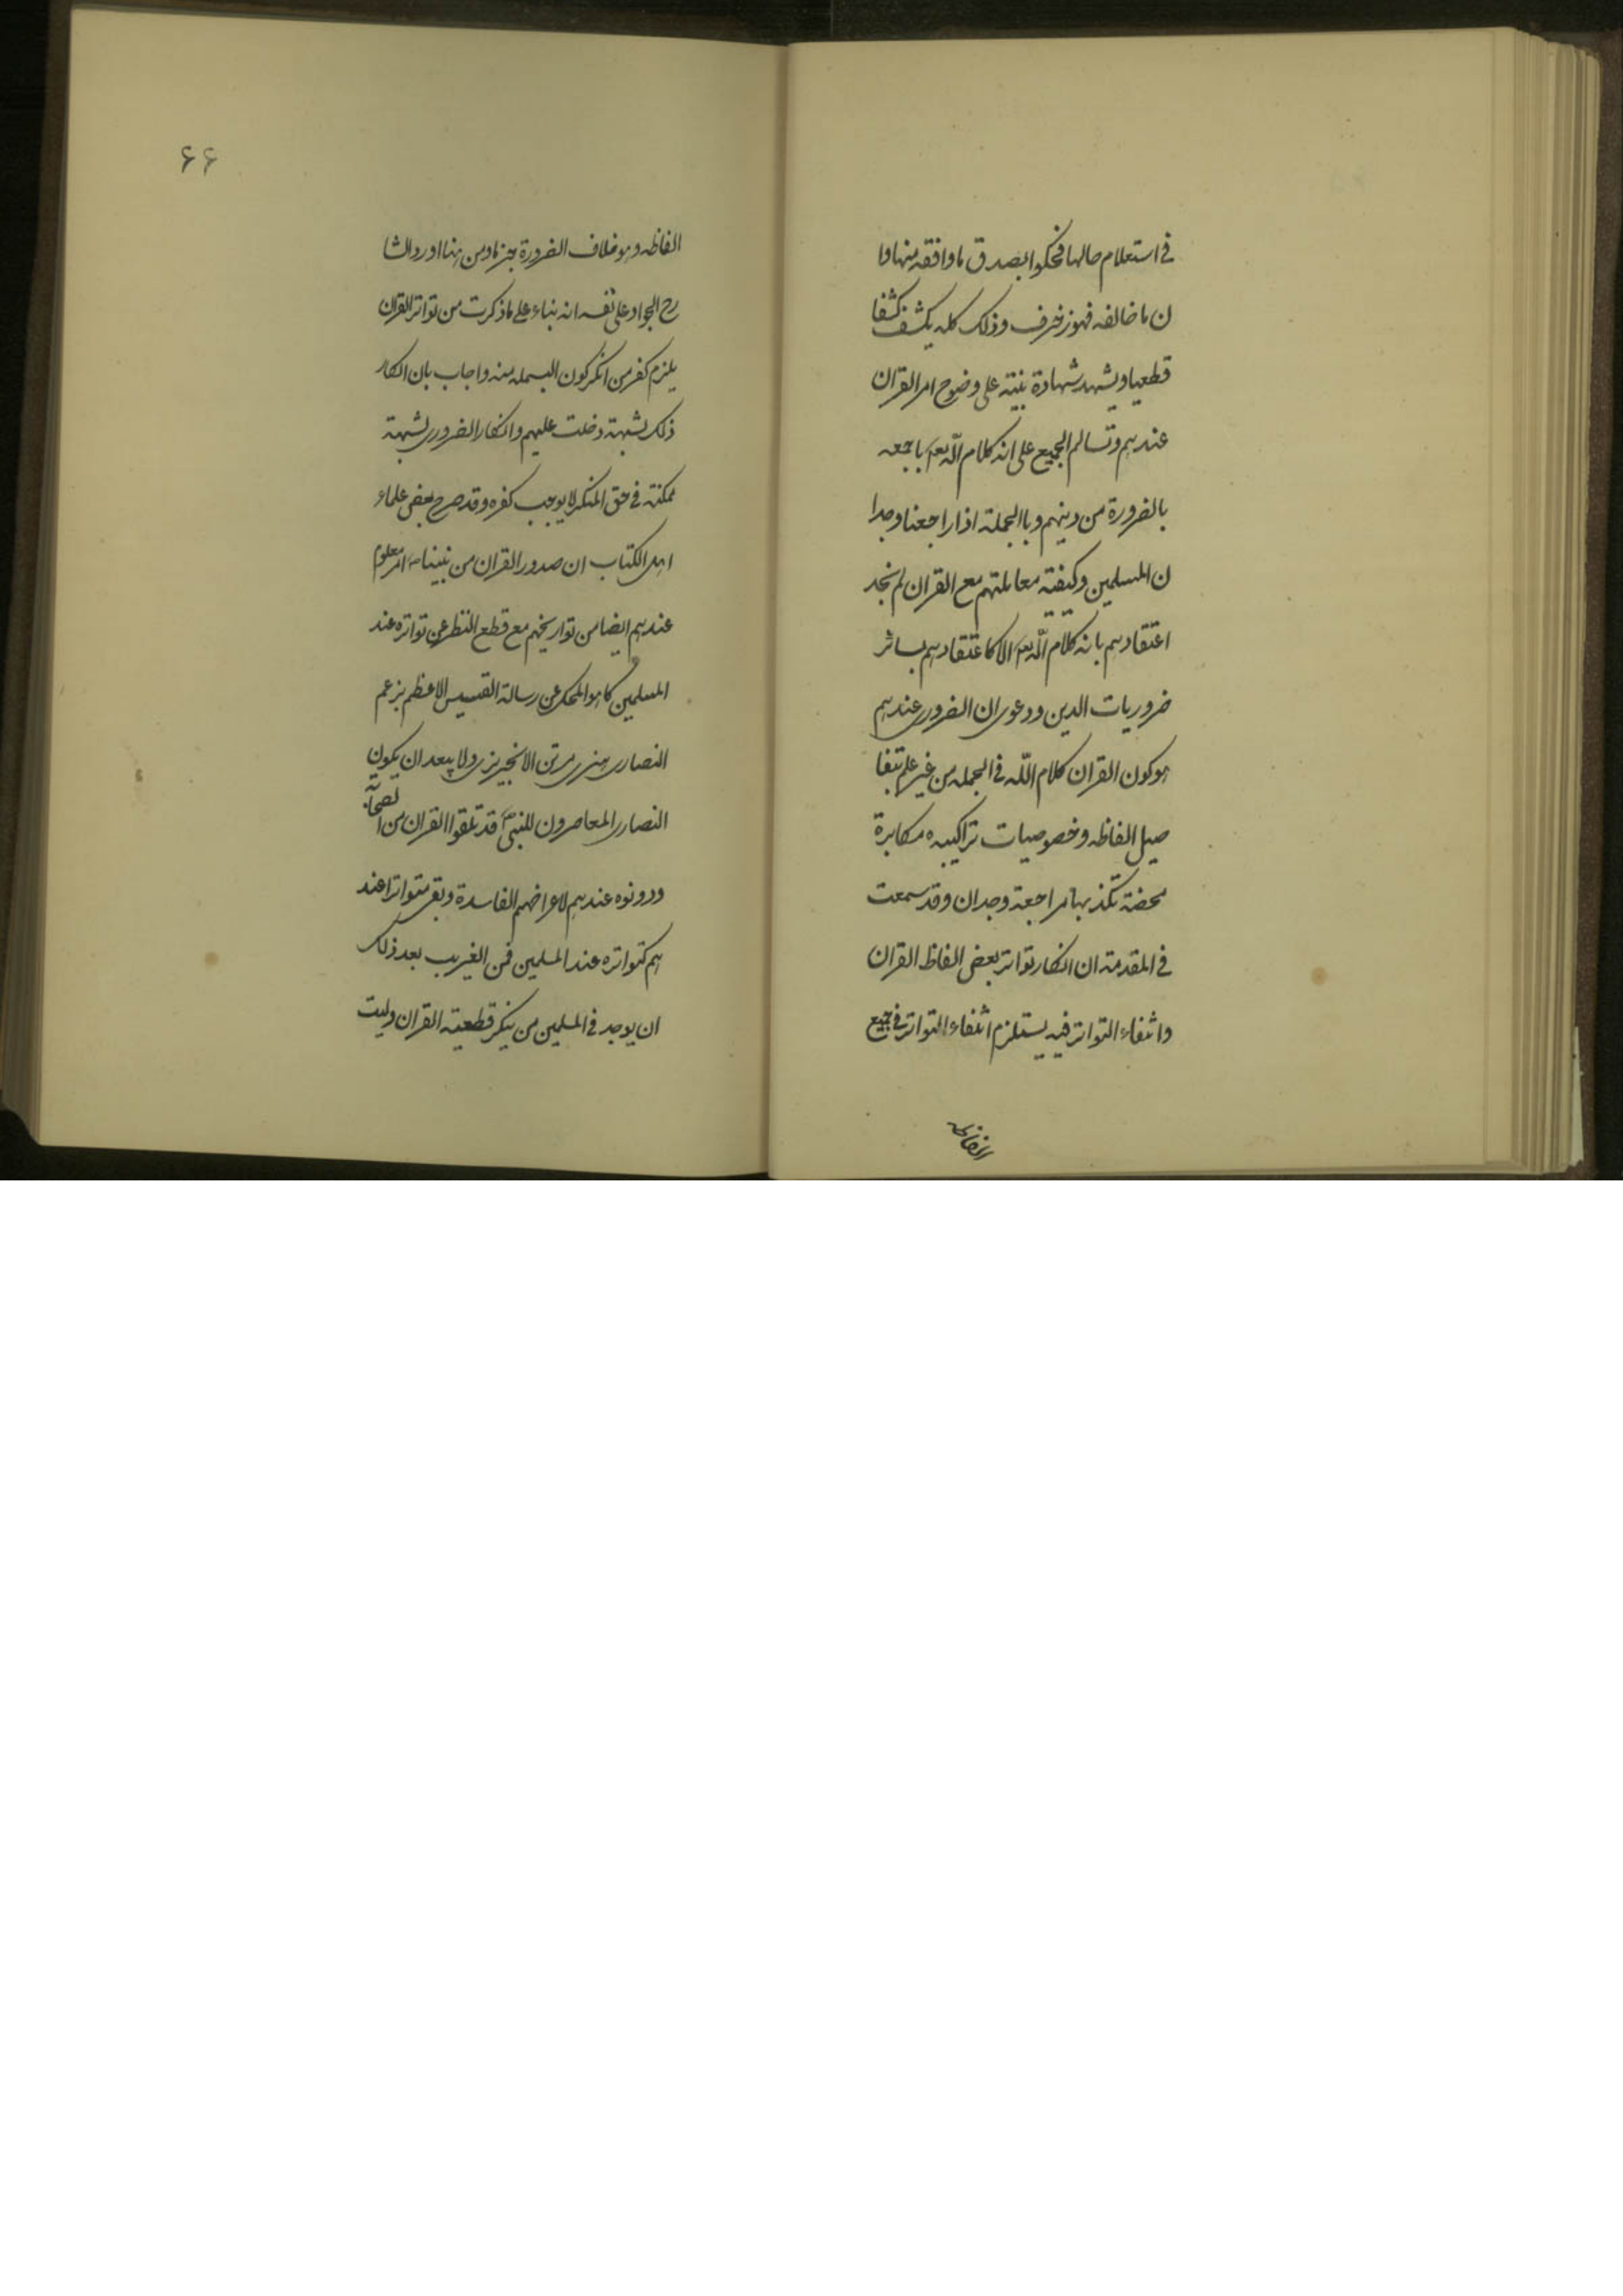 في استعلام حالها فحكموا بصدق ما وافقه منها وا
ن ما خالفه فهو زخرف وذلك كله يكشف كشفا
قطعيا ويشهد شهادة بينة على وضوح امر القران
عندهم وتسالم الجميع على انه كلام الله تعه باجمعه
بالضرورة من دينهم وبا الجملة اذا راجعنا وجدا
ن المسلمين وكيفية معاملتهم مع القران لم نجد
اعتقادهم بانه كلام الله تعه الا كاعتقادهم بسائر
ضروريات الدين ودعوى ان الضروري عندهم
هو كون القران كلام الله في الجمله من غير علم بتفا
صيل الفاظه وخصوصيات تراكيبه مكابرة
محضة تكذبها مراجعة وجدان وقد سمعت
في المقدمة ان انكار تواتر بعض الفاظ القران
وانتفاء التواتر فيه يستلزم انتفاء التواتر في جميع
الفاظه
٦٦
الفاظه وهو خلاف الضرورة جزما ومن هنا اورد الشا
رح الجواد على نفسه انه بناء على ما ذكرت من تواتر القران
يلزم كفر من انكر كون البسمله منه واجاب بان انكار
ذلك لشبهة دخلت عليهم وانكار الضروري لشبهة
ممكنة في حق المنكر لا يوجب كفره وقد صرح بعض علماء
اهل الكتاب ان صدور القران من نبينا ص امر معلوم
عندهم ايضا من تواريخهم مع قطع النظر عن تواتره عند
المسلمين كما هو المحكي عن رسالة القسيس الاعظم بزعم
النصارى هنري مرتن الانجيريزي ولا يبعد ان يكون
النصارى المعاصرون للنبي ص قد تلقوا القران من الصحابة
ودونوه عندهم لاغراضهم الفاسدة وبقي متواترا عند
هم كتواتره عند المسلمين فمن الغريب بعد ذلك
ان يوجد في المسلمين من ينكر قطعية القران وليت